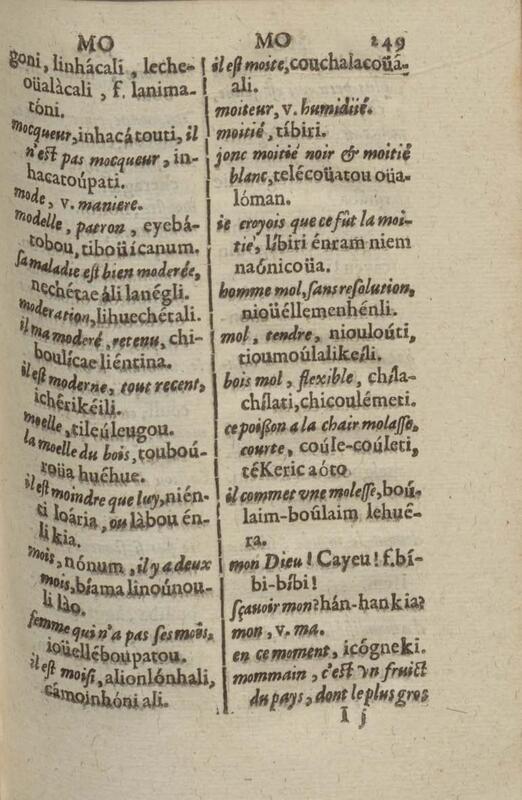 MO
goni, linhácali, leche-
oüalàcali, f. lanima-
tóni.
mocqueur, inhacátouti, il
n'est pas mocqueur, in-
hacatoúpati.
mode, v. maniere.
modelle, patron, eyebá-
tobou, tiboüícanum.
sa maladie est bien moderée,
nechétae áli lanégli.
moderation, lihuechétali.
il ma moderé, retenu, chi-
boulícae liéntina.
il est moderne, tout recent,
ichérikéili.
moelle, tileúleugou.
la moelle du bois, touboú-
roüa huéhue.
il est moindre que luy, nién-
ti loária, ou làbou én-
li kia.
mois, nónum, il y a deux
mois, bíama linoúnou-
li lào.
femme qui n'a pas ses mois,
ioüelléboupatou.
il est moisi, alionlónhali,
càmoinhóni ali.
MO 249
il est moite, couchalacoüá-
ali.
moiteur, v. humidité.
moitié, tíbiri.
jonc moitié noir & moitié
blanc, telécoüatou oüa-
lóman.
ie croyois que ce fût la moi-
tié, líbiri énram niem
naónicoüa.
homme mol, sans resolution,
nioüéllemenhénli.
mol, tendre, nioulouti,
tioumoúlalikeíli.
bois mol, flexible, chíla-
chílati, chicoulémeti.
ce poißon a la chair molasse,
courte, coúle-coúleti,
téKeric aóto
il commet vne molesse, boú-
laim-boúlaim lehué-
ra.
mon Dieu! Cayeu! f. bí-
bi-bíbi!
sçauoir mon? hán-hankia?
mon, v. ma.
en ce moment, icógneki.
mommain, c'est vn fruict
du pays, dont le plus gros
I j